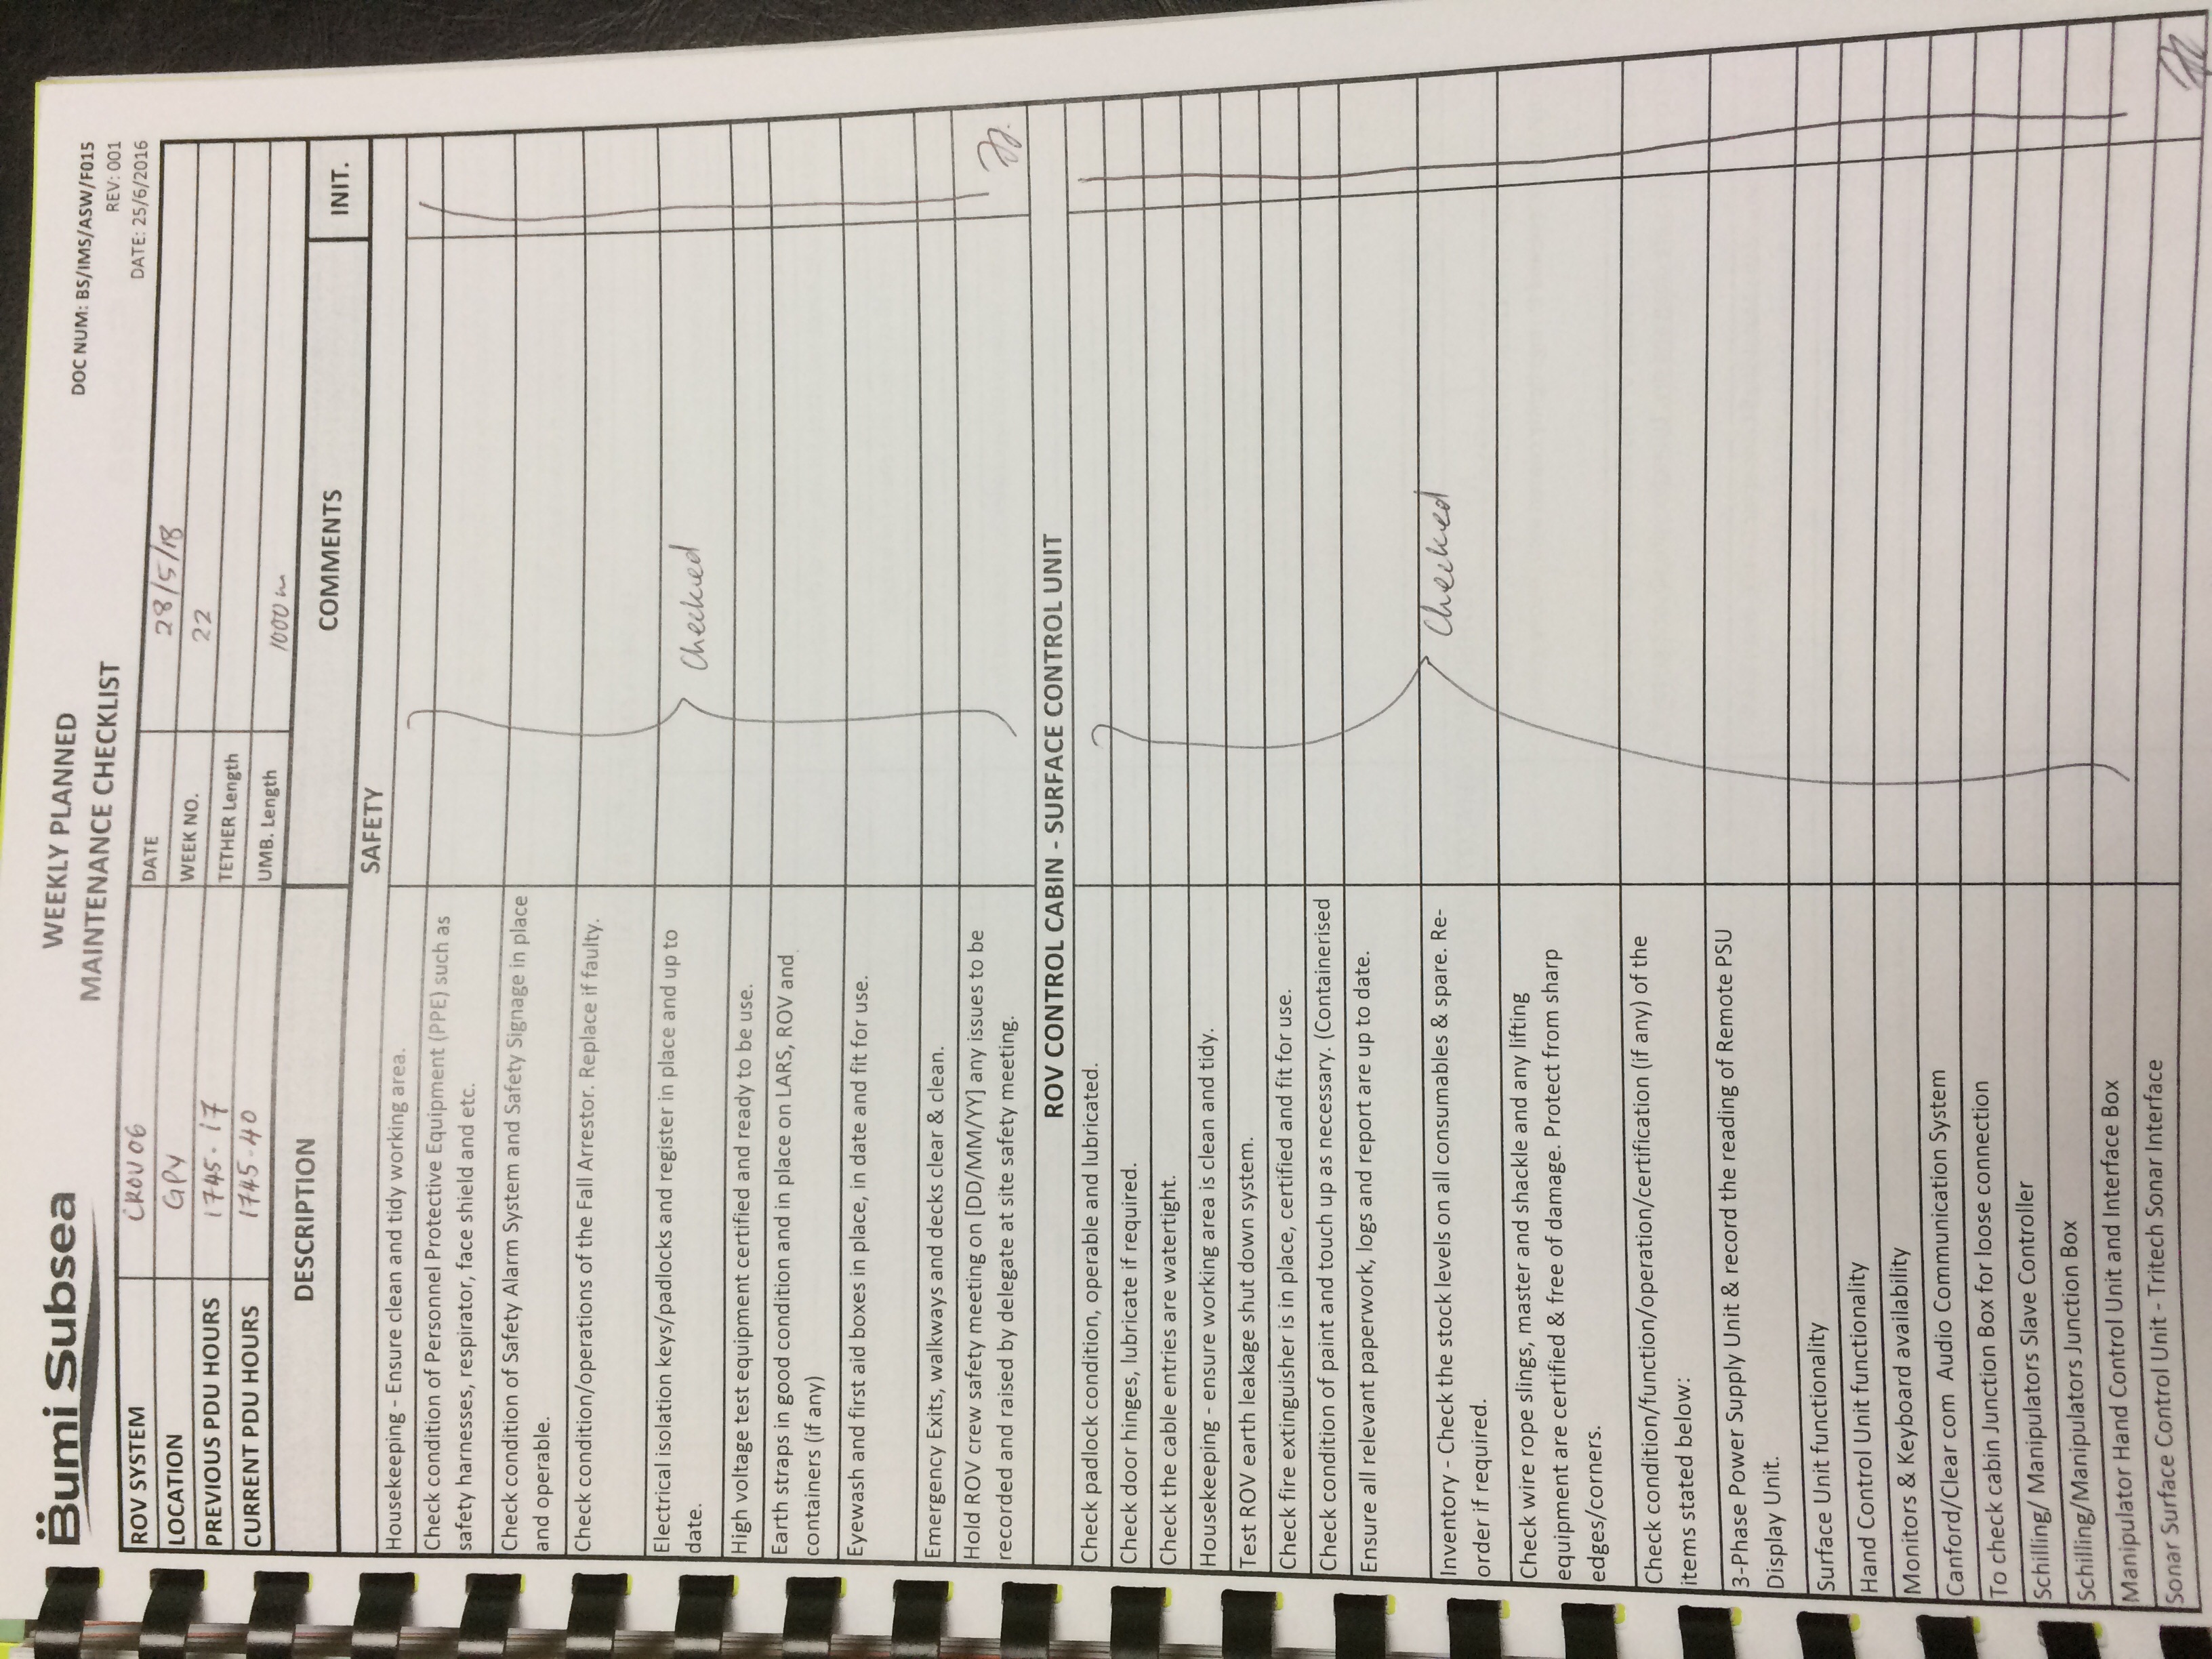 Bumi Subsea
WEEKLY PLANNED
MAINTENANCE CHECKLIST
DOC NUM: BS/IMS/ASW/F015
REV: 001
DATE: 25/6/2016
ROV SYSTEM CROV06
DATE 28/5/18
LOCATION GPY
WEEK NO. 22
PREVIOUS PDU HOURS 1745.17
TETHER Length
CURRENT PDU HOURS 1745.40
UMB. Length 1000m
DESCRIPTION COMMENTS INIT.
SAFETY
Housekeeping - Ensure clean and tidy working area.
Check condition of Personnel Protective Equipment (PPE) such as
safety harnesses, respirator, face shield and etc.
Check condition of Safety Alarm System and Safety Signage in place
and operable.
Check condition/operations of the Fall Arrestor. Replace if faulty.
Electrical isolation keys/padlocks and register in place and up to
date.
Checked
High voltage test equipment certified and ready to be use.
Earth straps in good condition and in place on LARS, ROV and
containers (if any)
Eyewash and first aid boxes in place, in date and fit for use.
Emergency Exits, walkways and decks clear & clean.
Hold ROV crew safety meeting on [DD/MM/YY] any issues to be
recorded and raised by delegate at site safety meeting.
ROV CONTROL CABIN - SURFACE CONTROL UNIT
Check padlock condition, operable and lubricated.
Check door hinges, lubricate if required.
Check the cable entries are watertight.
Housekeeping - ensure working area is clean and tidy.
Test ROV earth leakage shut down system.
Check fire extinguisher is in place, certified and fit for use.
Check condition of paint and touch up as necessary. (Containerised
Ensure all relevant paperwork, logs and report are up to date.
Inventory - Check the stock levels on all consumables & spare. Re-
order if required.
Checked
Check wire rope slings, master and shackle and any lifting
equipment are certified & free of damage. Protect from sharp
edges/corners.
Check condition/function/operation/certification (if any) of the
items stated below:
3-Phase Power Supply Unit & record the reading of Remote PSU
Display Unit.
Surface Unit functionality
Hand Control Unit functionality
Monitors & Keyboard availability
Canford/Clear com Audio Communication System
To check cabin Junction Box for loose connection
Schilling/ Manipulators Slave Controller
Schilling/Manipulators Junction Box
Manipulator Hand Control Unit and Interface Box
Sonar Surface Control Unit - Tritech Sonar Interface